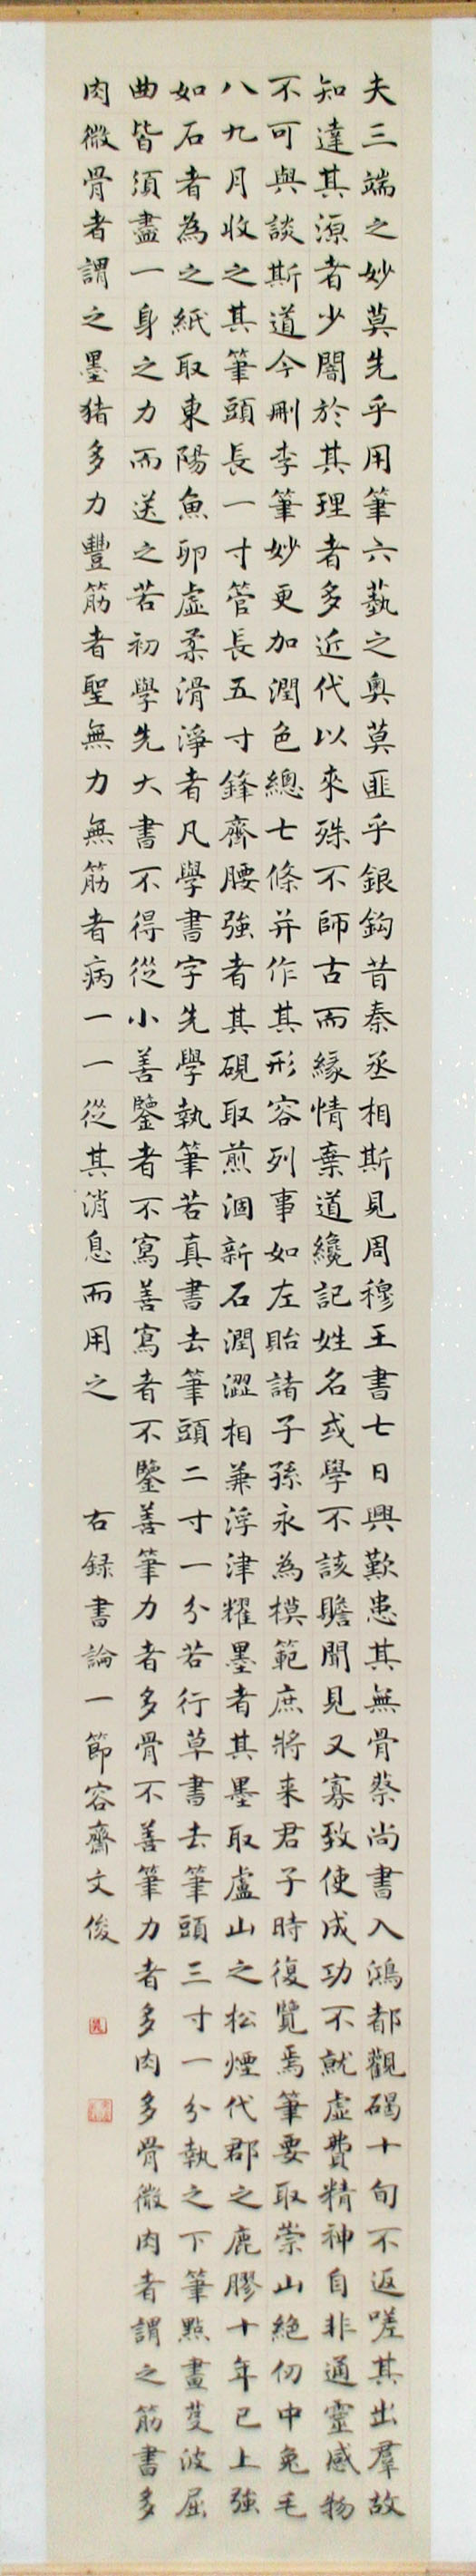 夫三端之妙莫先乎用筆六藝之奧莫匪乎銀鈎昔秦丞相斯見周穆王書七日興歎患其無骨蔡尚書入鴻都觀碣十旬不返嗟其出羣故
知達其源者少闇於其理者多近代以來殊不師古而緣情棄道纔記姓名或學不該贍聞見又寡致使成功不就虛費精神自非通靈感物
不可與談斯道今刪李筆妙更加潤色總七條并作其形容列事如左貽諸子孫永為模範庶將来君子時復覽焉筆要取崇山絕仞中兔毛
八九月收之其筆頭長一寸管長五寸鋒齊腰強者其硯取煎涸新石潤澀相兼浮津耀墨者其墨取盧山之松煙代郡之鹿膠十年已上強
如石者為之紙取東陽魚卵虛柔滑淨者凡學書字先學執筆若真書去筆頭二寸一分若行草書去筆頭三寸一分執之下筆點畫芟波屈
曲皆須盡一身之力而送之若初學先大書不得從小善鑒者不寫善寫者不鑒善筆力者多骨不善筆力者多肉多骨微肉者謂之筋書多
肉微骨者謂之墨猪多力豐筋者聖無力無筋者病一一從其消息而用之 右録書論一節容齋文俊